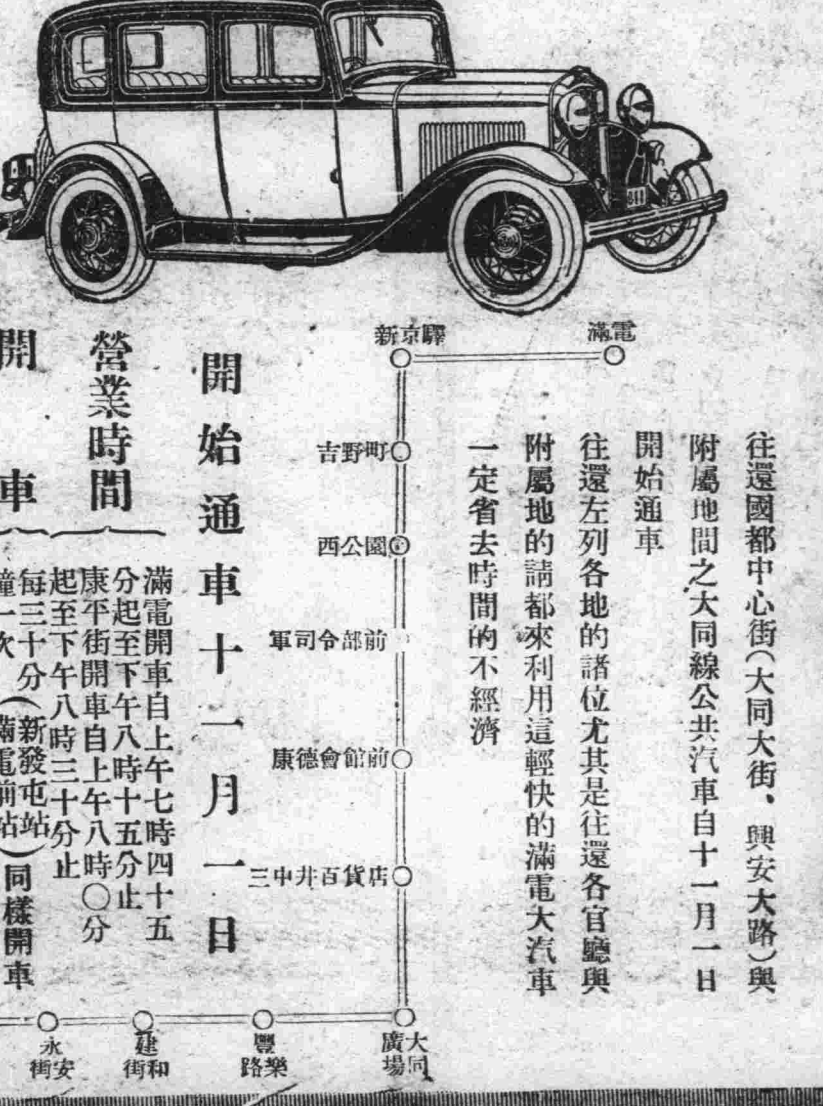 往還國都中心街（大同大街、興安大路）與
附屬地間之大同線公共汽車自十一月一日
開始通車
往還左列各地的諸位尤其是往還各官廳與
附屬地的請都來利用這輕快的滿電大汽車
一定省去時間的不經濟
滿電
新京驛
吉野町
西公園
軍司令部前
康德會館前
三中井百貨店
大同廣場
豐樂路
建和街
永安街
開始通車十一月一日
營業時間
滿電開車自上午七時四十五
分起至下午八時十五分止
康平街開車自上午八時〇分
起至下午八時三十分止
開車
每三十分（新發屯站）同樣開車
鐘一次（滿電前站）